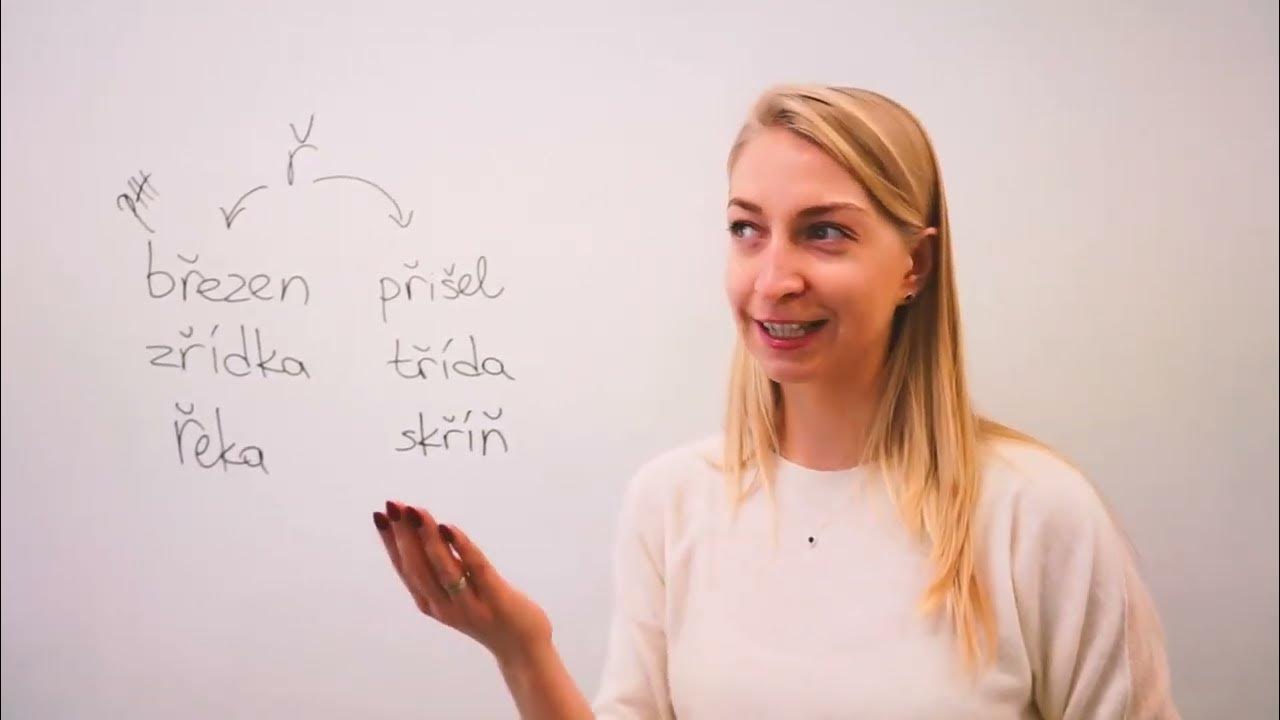 ř
březen přišel
zřídka třída
řeka skříň